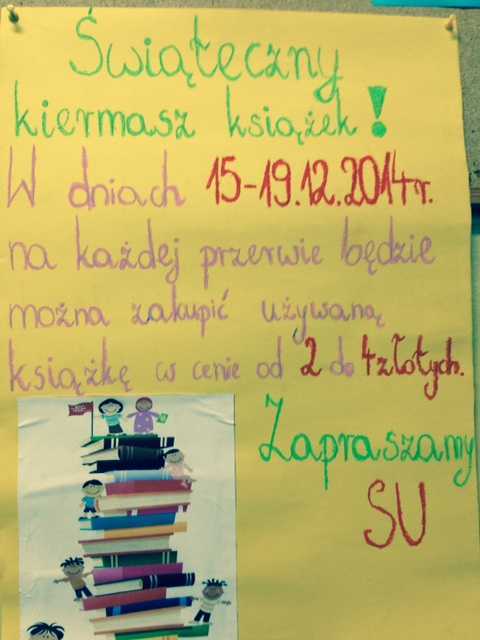 Świąteczny
kiermasz książek!
W dniach 15-19.12.2014r.
na każdej przerwie będzie
można zakupić używaną
książkę w cenie od 2 do 4 złotych.
Zapraszamy
SU